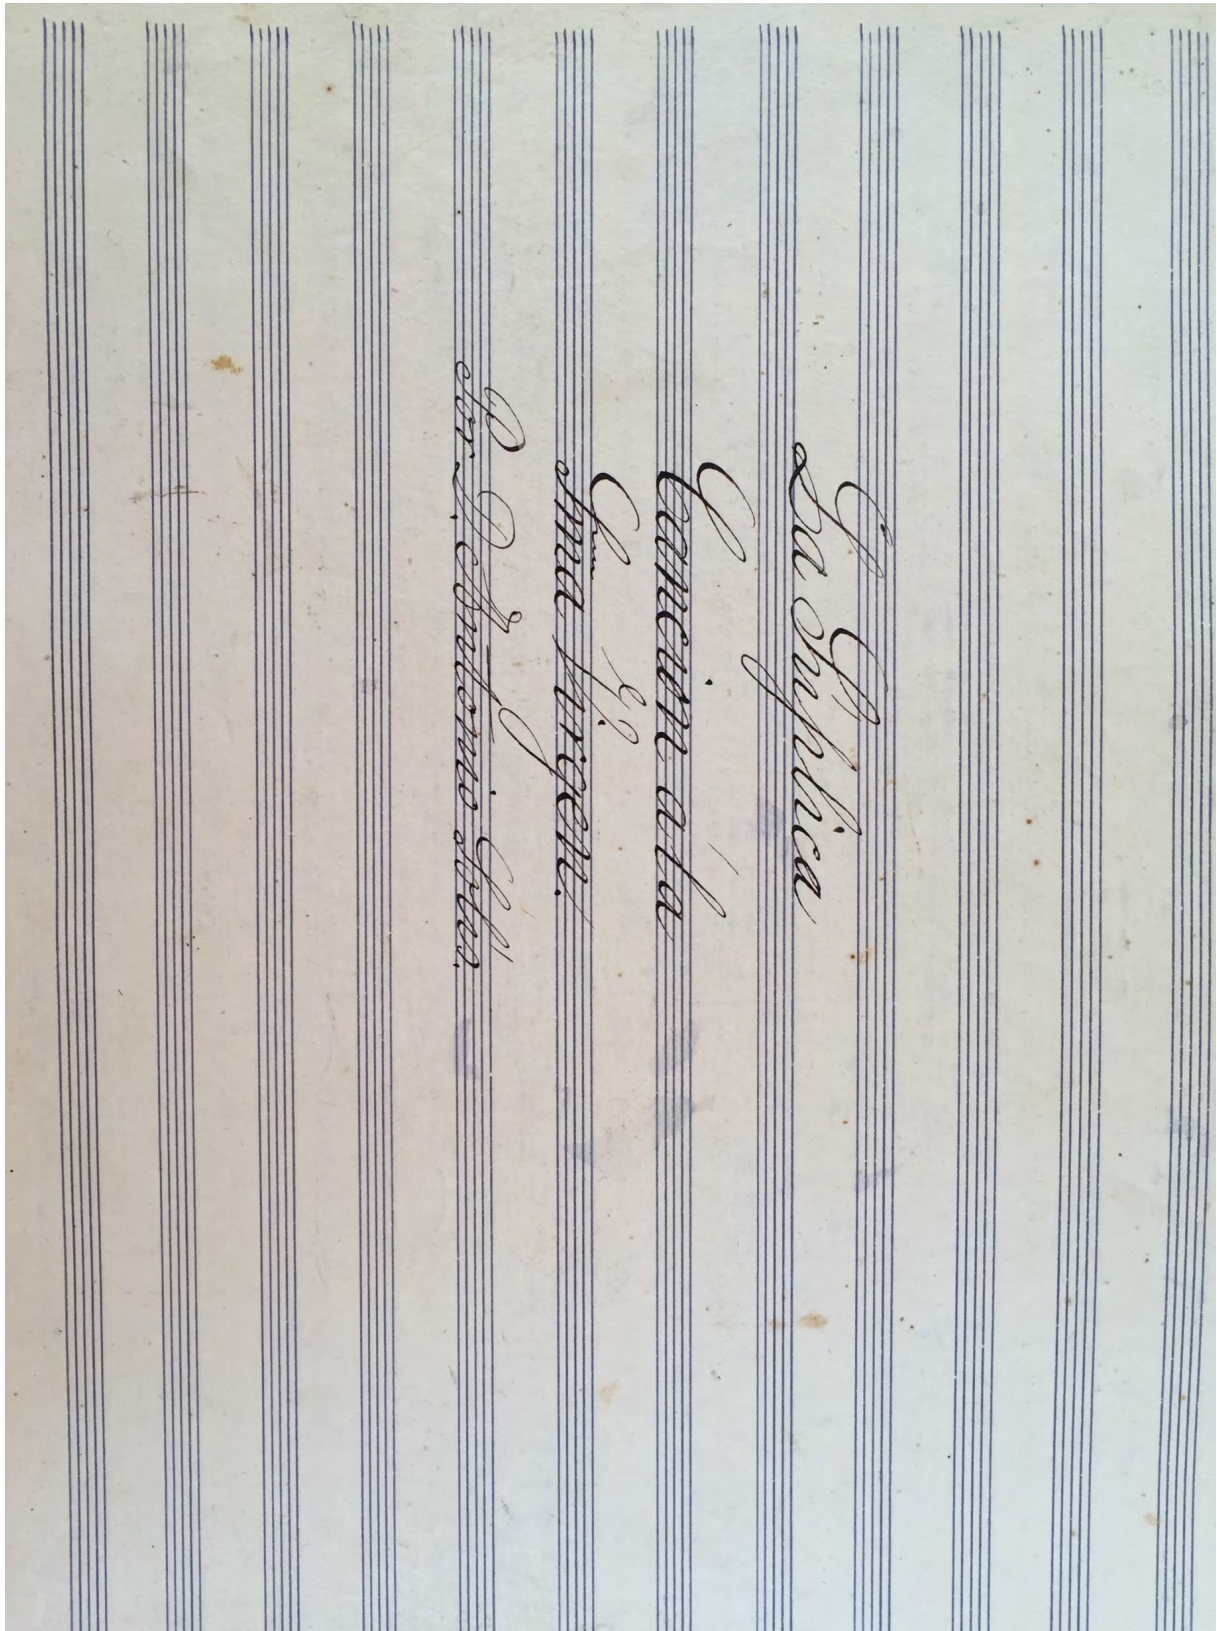 La Suplica
Cancion á la
Sma Virgen.
Por D. Antonio